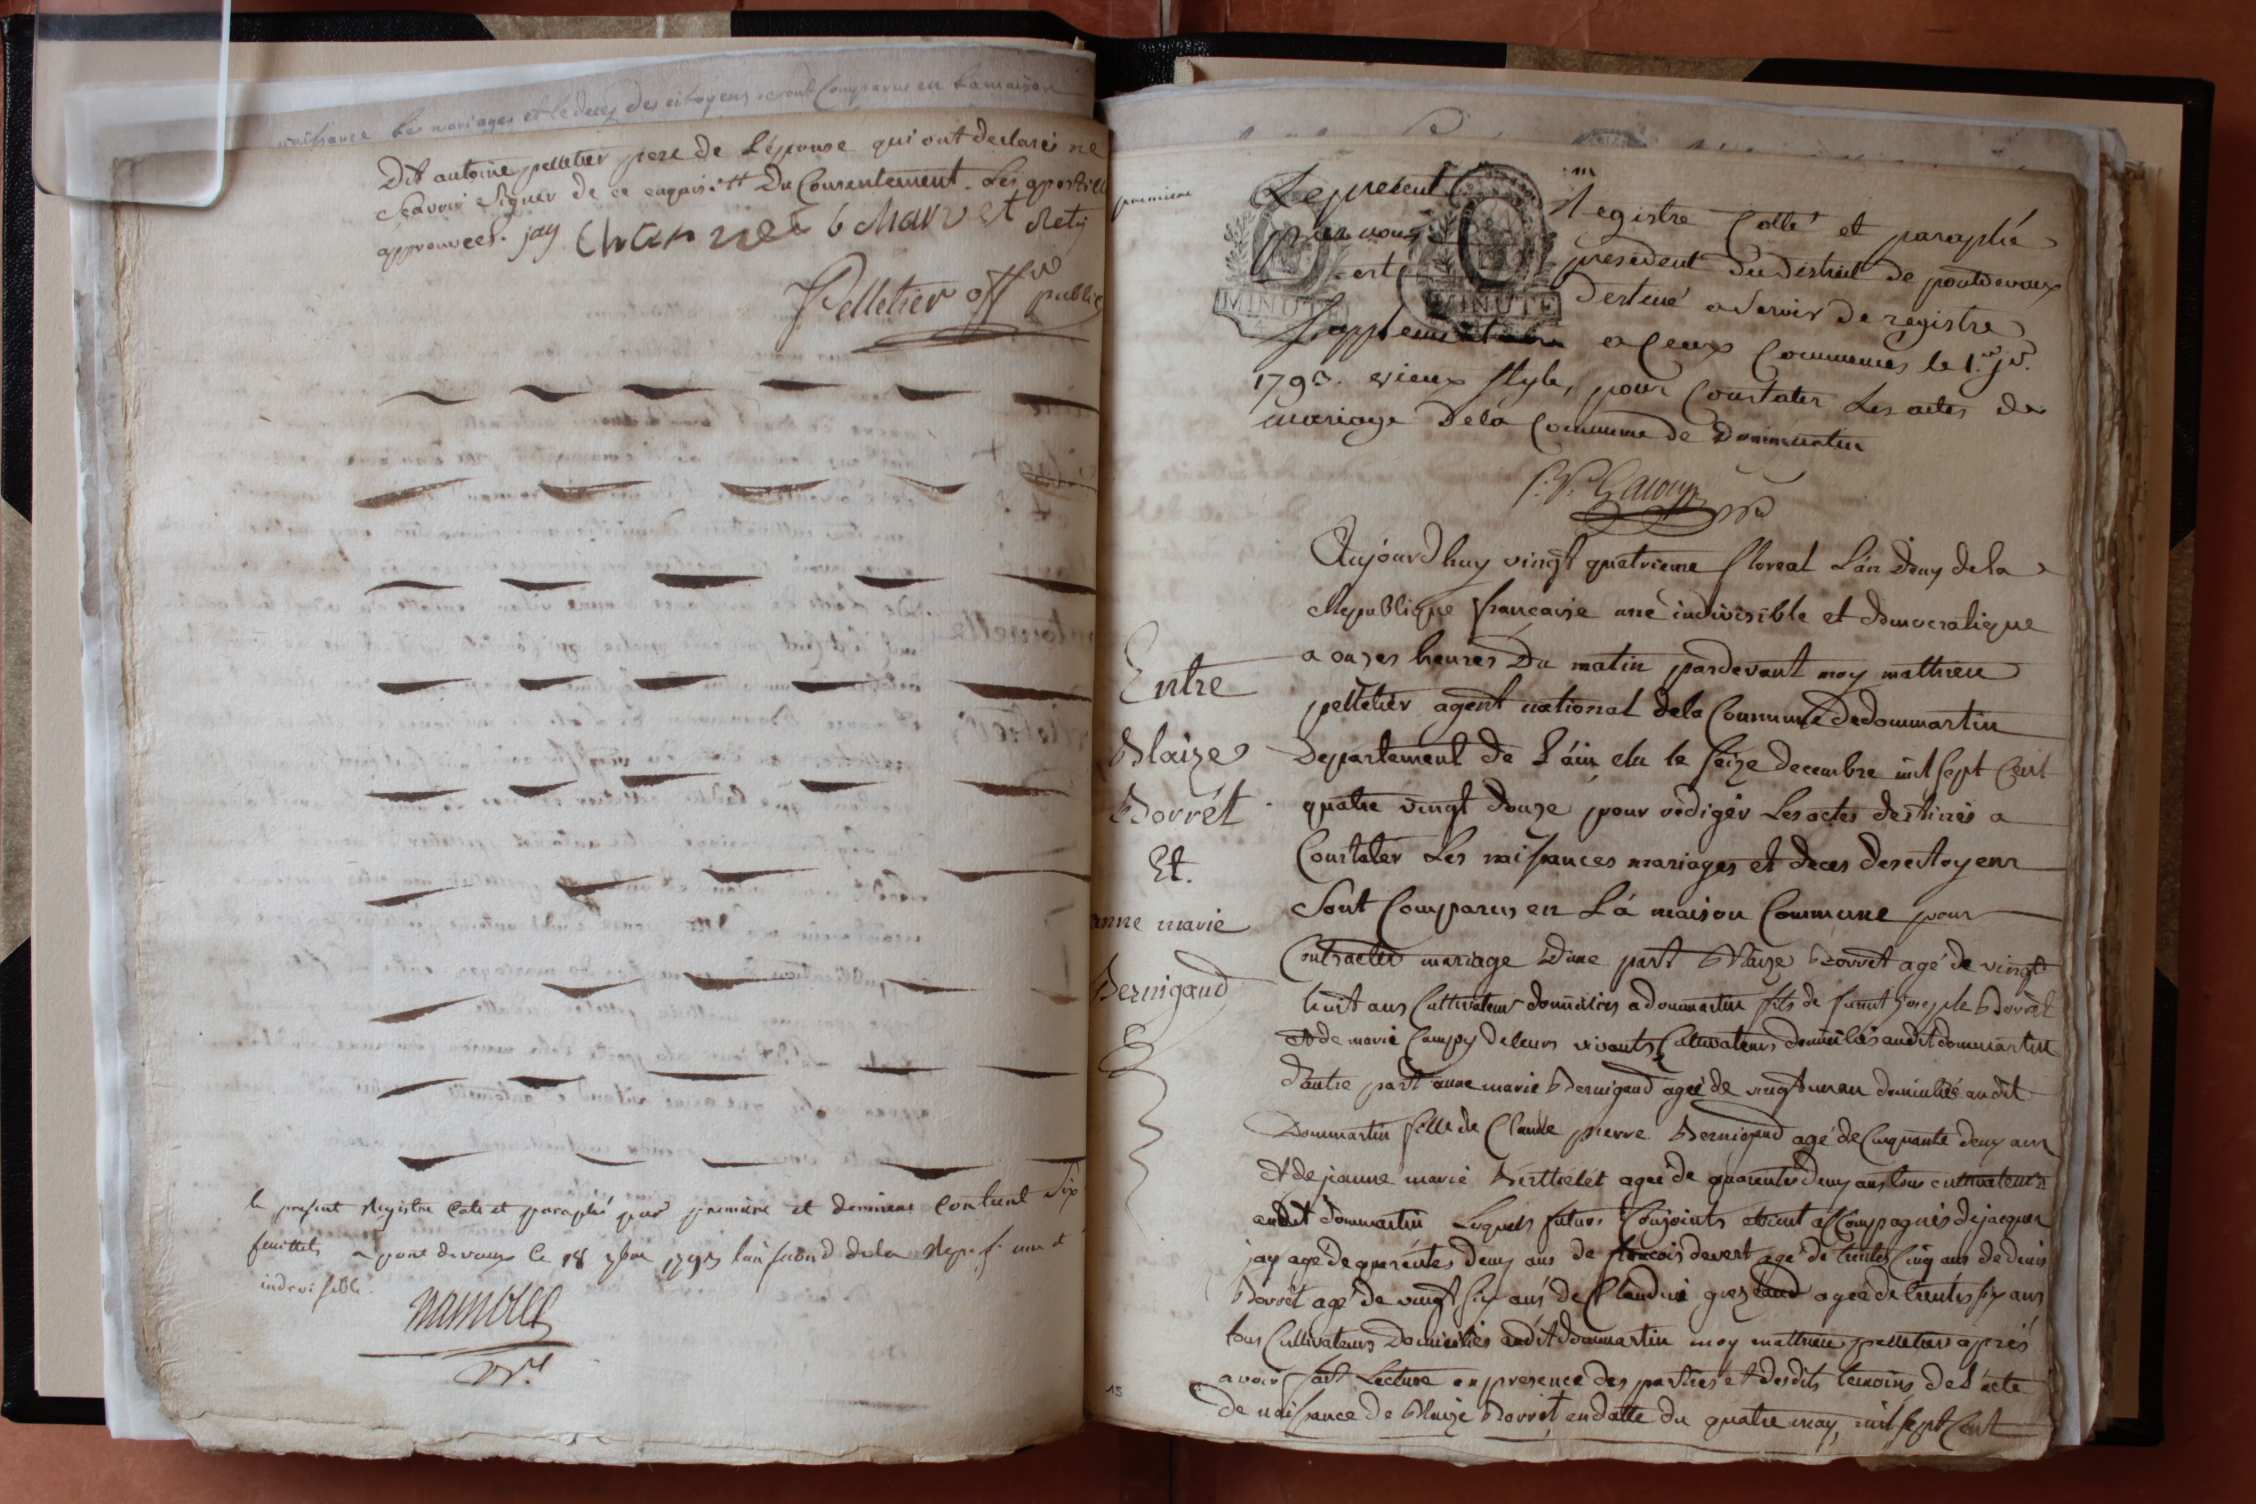 naissance les mariages et le deces des citoyens sont Comparus en la maison
Dit antoine pelletier pere de L'épouse qui ont declarés ne
Scavoir Signer de ce enquis et Du Consentement. Les apostilles
approuvées. jay Channel b charvet Rety
Pelletier off.er public
le present Registre Cote et paraphé par premiere et derniere Contient Six
feuillets a pont devaux Ce 18 9bre 1793 l'an second de la Rep. f. une et
indivisible.
premiere
Le present Registre Cotté et paraphé
par nous président du district de pontdevaux
est destiné a Servir de registre
Supplementaire a Ceux Commencés le 1.er jer.
MINUTE
MINUTE
1793. vieux style, pour Constater Les actes de
mariage de la Commune de Dommartin
Aujourdhuy vingt quatrieme floreal L'an deuy de la
Republique francaise une indivisible et democratique
a onzes heures Du matin pardevant moy mathieu
pelletier agent national de la Commune de dommartin
Departement de L'ain elu le seize decembre mil sept Cent
quatre vingt douze pour rediger Les actes destinés a
Constater Les naissances mariages et deces des citoyens
Sont Comparus en La maison Commune pour
Contracter mariage D'une part Blaize Borrét agé de vingt
huit ans Cultivateur domicilies a dommartin fils de funt Joseph Borrét
Et de marie Campy de leurs vivants Cultivateurs domiciliés audit dommartin
d'autre part anne marie Bernigaud agée de vingt un an domiciliée audit
Dommartin fille de Claude pierre Bernigaud agé de Cinquante deuy ans
Et de jeanne marie Berthelét agée de quarentes deuy ans tous cultivateurs
audit dommartin Lesquels futurs Conjoints etoient acCompagnés de jacques
jay agé de quarentes deuy ans de francois devert agé de trentes Cinq ans de denis
Borrét agé de vingt siy ans de Claudine agée de trentes siy ans
tous Cultivateurs Domiciliés audit dommartin moy mathieu pelletier aprés
avoir fait Lecture en presence des parties et desdits temoins de L'acte
de naissance de Blaize Borrét en datte du quatre may, mil sept Cent
Entre
Blaize
Borrét
Et.
anne marie
Bernigaud
15